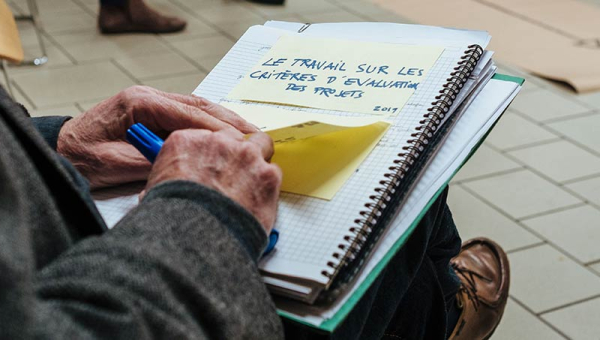 LE TRAVAIL SUR LES
CRITÈRES D'EVALUATION
DES PROJETS
2019